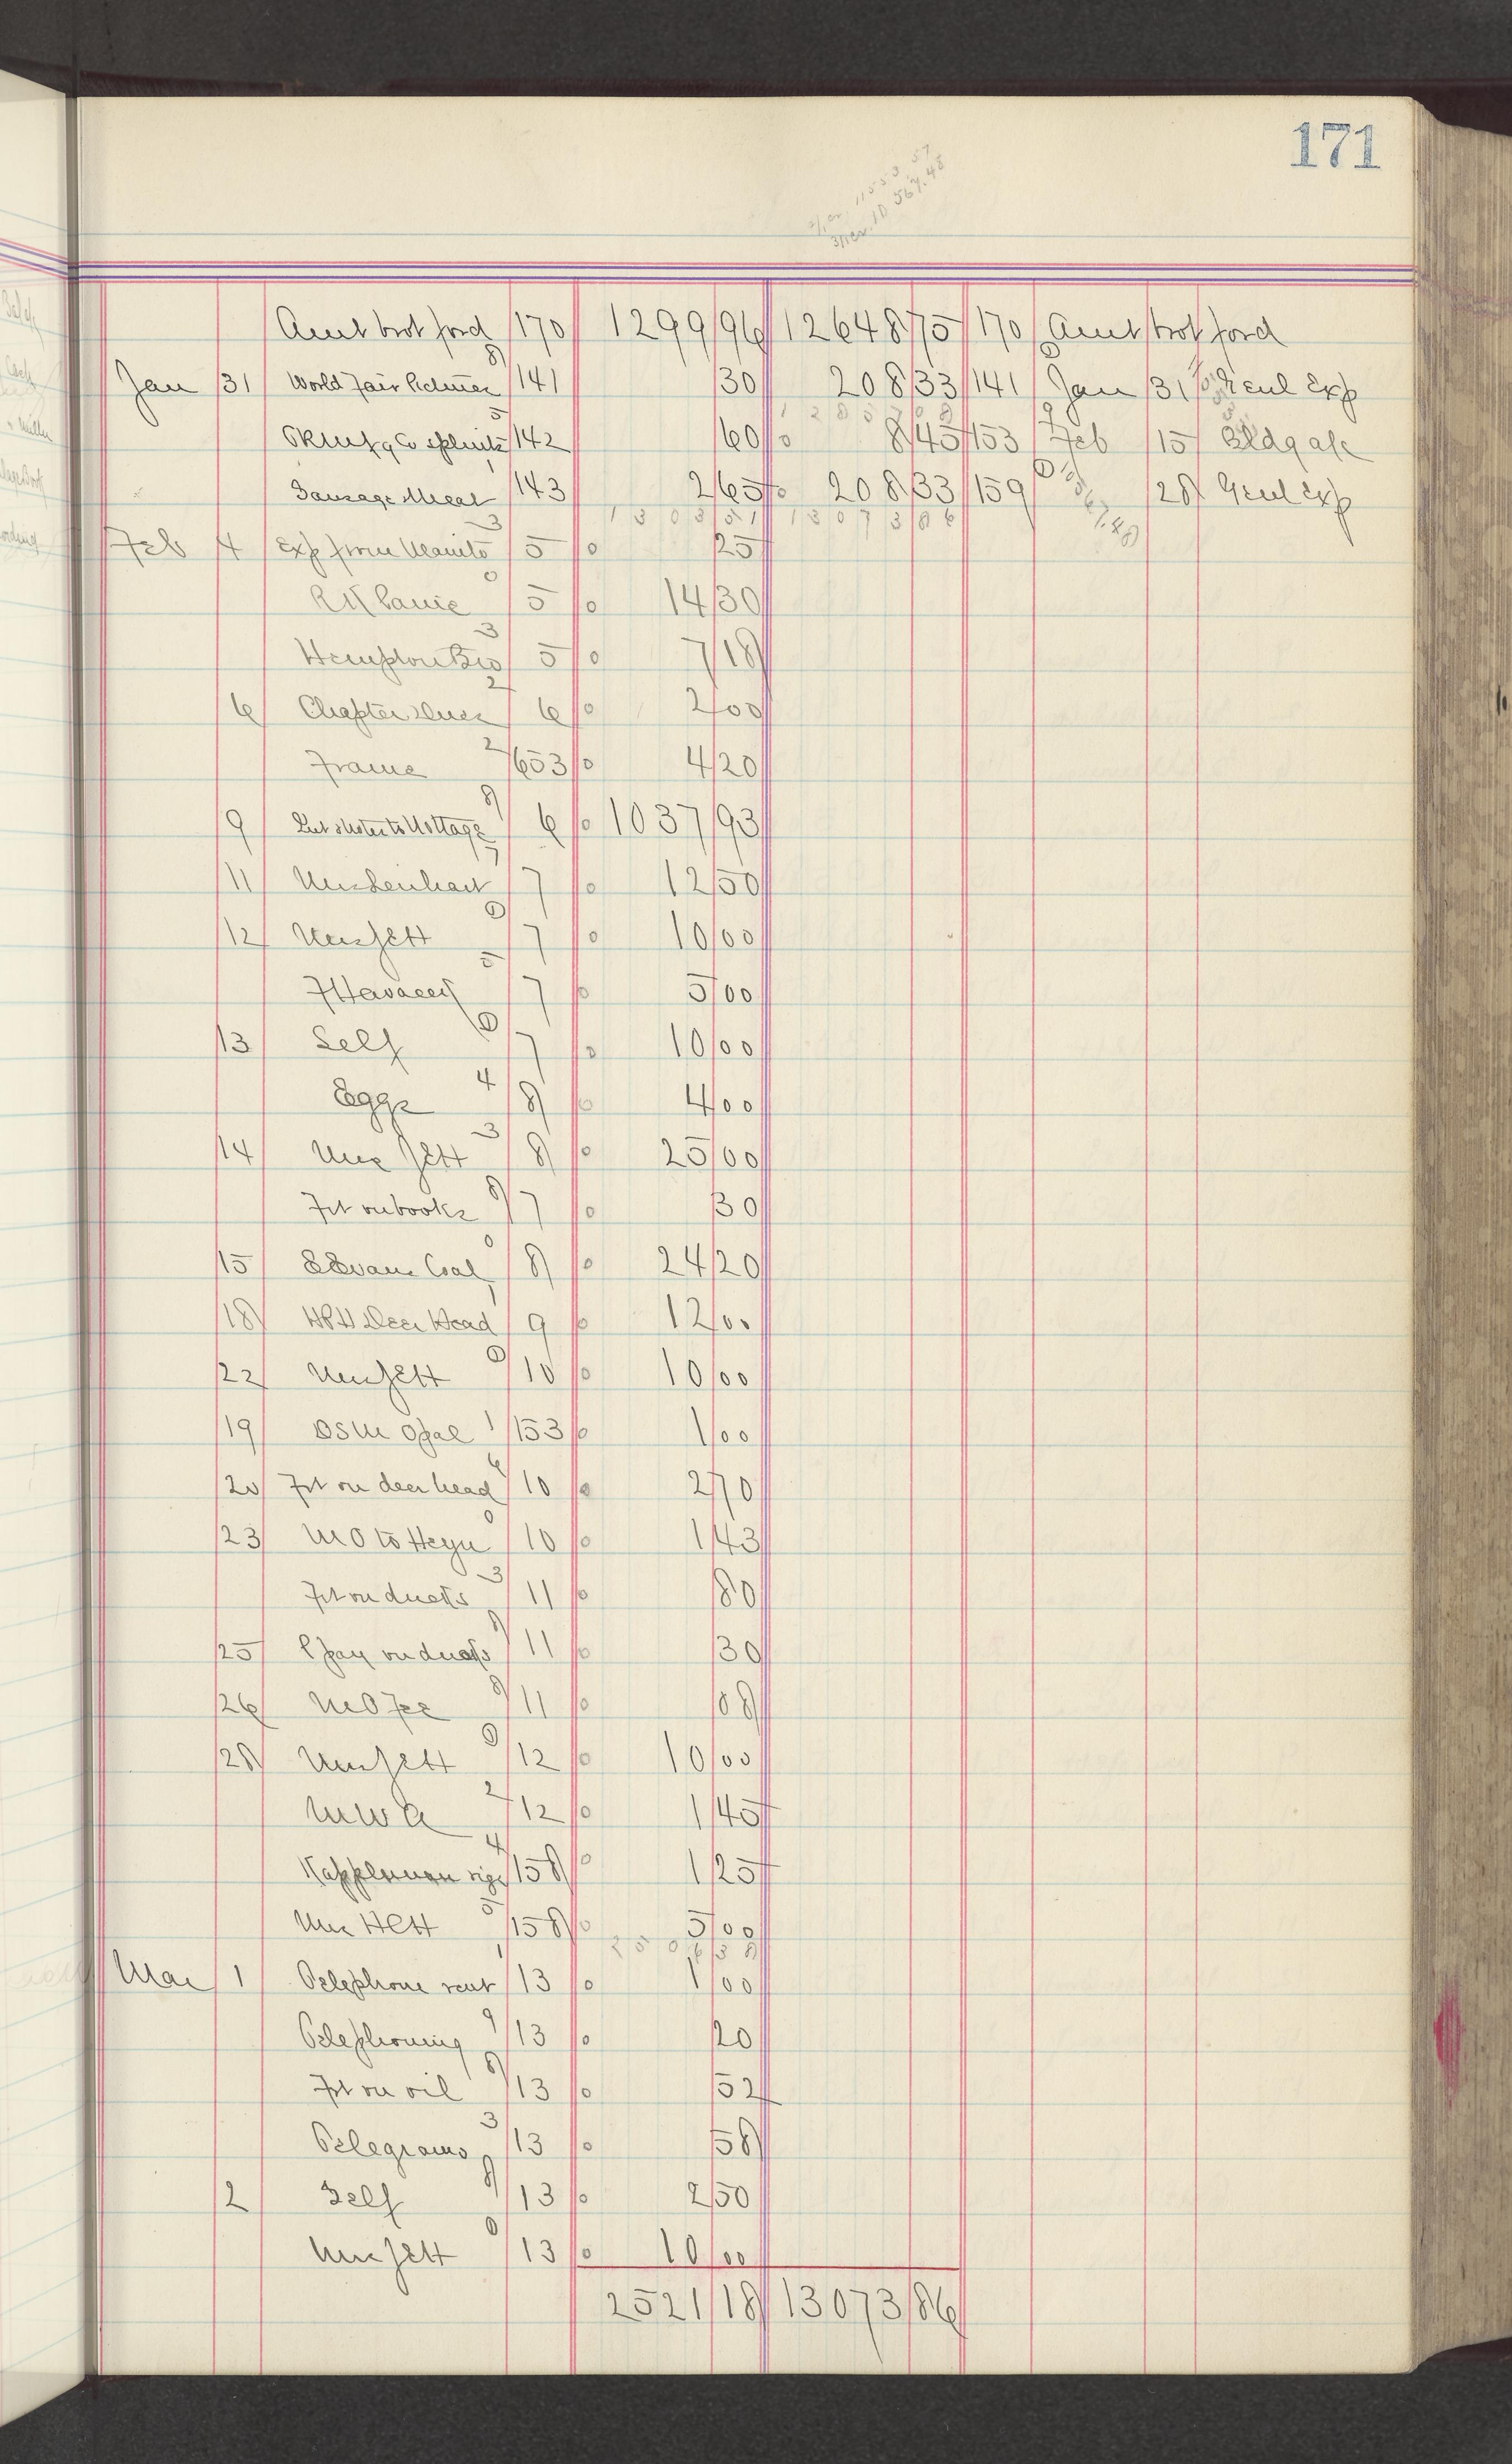 171
11553.57
10567.48
Amt brot ford 170 1299 96 12648 75 170 Amt brot ford
Jan 31 World Fair 8 141 30 208 33 141 Jan 31 Genl Exp
12857 08
& Co 5 142 60 8 45 153 Feb 15 Bldg a/c
Sausage Meat 1 143 2 65 208 33 159 28 Genl Exp
1303 51 13073 86
Feb 4 Exp from 3 5 25
0 5 14 30
Hempton Bro 3 5 7 18
6 Chapter dues 2 6 2 00
Frame 2 653 4 20
9 8 6 1037 93
11 7 7 12 50
12 Mrs Jett 0 7 10 00
5 7 5 00
13 Self 0 7 10 00
Eggs 4 8 4 00
14 Mrs Jett 3 8 25 00
Frt on books 8 7 30
15 Evans Coal 0 8 24 20
18 Deer Head 1 9 12 00
22 Mrs Jett 0 10 10 00
19 Opal 1 153 1 00
20 Frt on deer head 6 10 2 70
23 M O to Heyn 0 10 1 43
Frt on ducks 3 11 80
25 on ducks 8 11 30
26 M O Fee 8 11 08
28 Mrs Jett 0 12 10 00
M W A 2 12 1 45
Kappleman rig 4 158 1 25
Mrs Hett 5 158 5 00
2506 38
Mar 1 Telephone rent 1 13 1 00
Telephoning 9 13 20
Frt on oil 8 13 52
Telegrams 3 13 58
2 Self 8 13 2 50
Mrs Jett 0 13 10 00
2521 18 13073 86